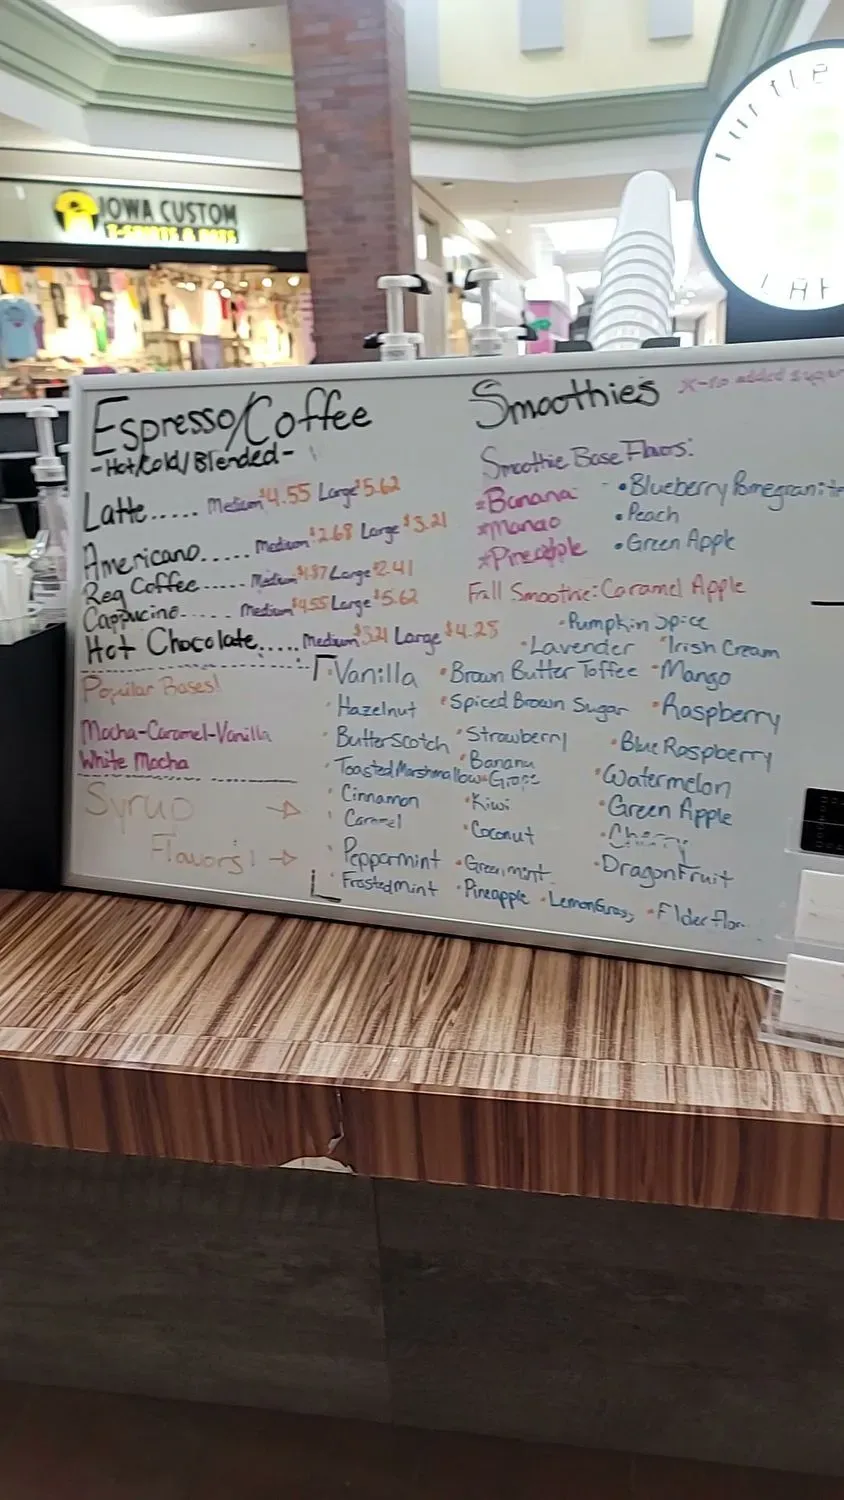 IOWA CUSTOM
T-SHIRTS & HATS
TURTLE
Espresso/Coffee
-Hot/Cold/Blended-
Latte..... Medium $4.55 Large $5.62
Americano..... Medium $2.68 Large $3.21
Reg Coffee..... Medium $1.87 Large $2.41
Cappucino..... Medium $4.55 Large $5.62
Hot Chocolate..... Medium $3.21 Large $4.28
Popular Bases!
Mocha-Caramel-Vanilla
White Mocha
Syrup
Flavors!
Smoothies *-no added sugar
Smoothie Base Flavors:
*Banana •Blueberry Pomegranite
*Mango •Peach
*Pineapple •Green Apple
Fall Smoothie: Caramel Apple
•Pumpkin Spice
•Lavender •Irish Cream
•Vanilla •Brown Butter Toffee •Mango
•Hazelnut •Spiced Brown Sugar •Raspberry
•Butterscotch •Strawberry •Blue Raspberry
•Toasted Marshmallow •Banana •Watermelon
•Grape
•Cinnamon •Kiwi •Green Apple
•Caramel •Coconut •Cherry
•Peppermint •Green mint •DragonFruit
•Frosted Mint •Pineapple •LemonGrass •Elderflor